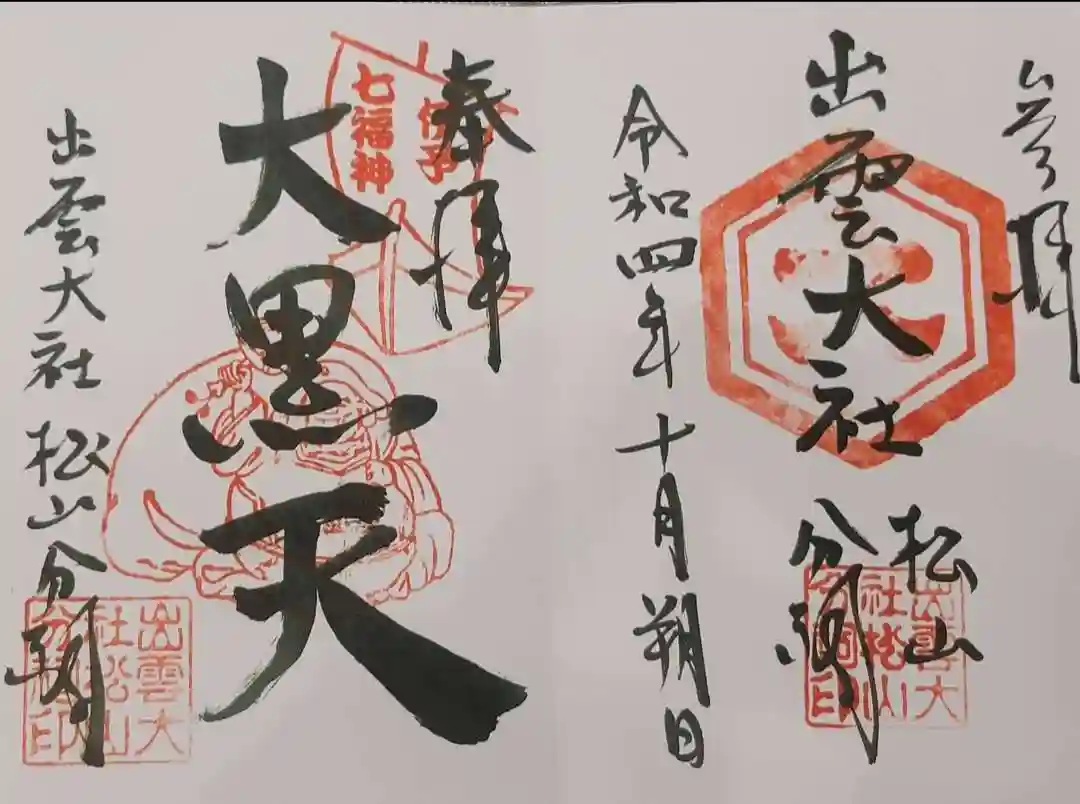 参拝
出雲大社
松山
分祠
出雲大
社松山
分祠印
令和四年十月朔日
奉拝
伊予
七福神
大黒天
出雲大社松山分祠
出雲大
社松山
分祠印